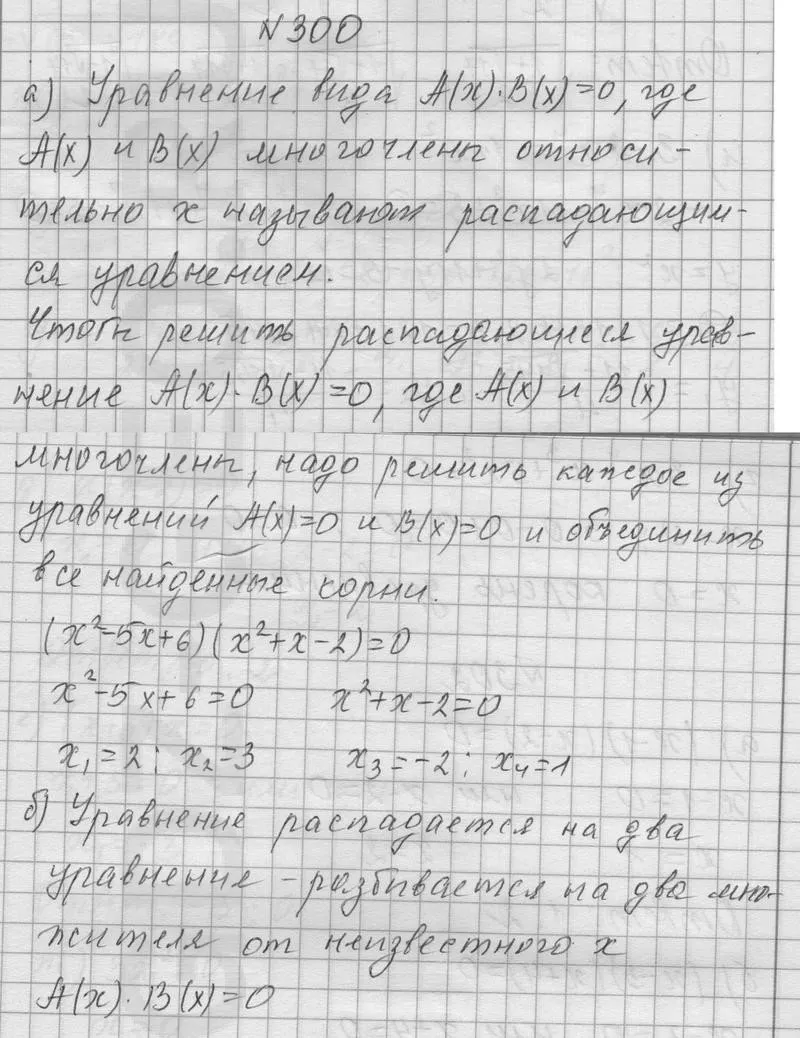 №300
а) Уравнение вида A(x)·B(x)=0, где
A(x) и B(x) многочлены относи-
тельно x называют распадающим-
ся уравнением.
Чтобы решить распадающиеся урав-
нение A(x)·B(x)=0, где A(x) и B(x)
многочлены, надо решить каждое из
уравнений A(x)=0 и B(x)=0 и объединить
все найденные корни.
(x²-5x+6)(x²+x-2)=0
x²-5x+6=0 x²+x-2=0
x₁=2; x₂=3 x₃=-2; x₄=1
б) Уравнение распадается на два
уравнения - розбивается на два мно-
жителя от неизвестного x
A(x)·B(x)=0